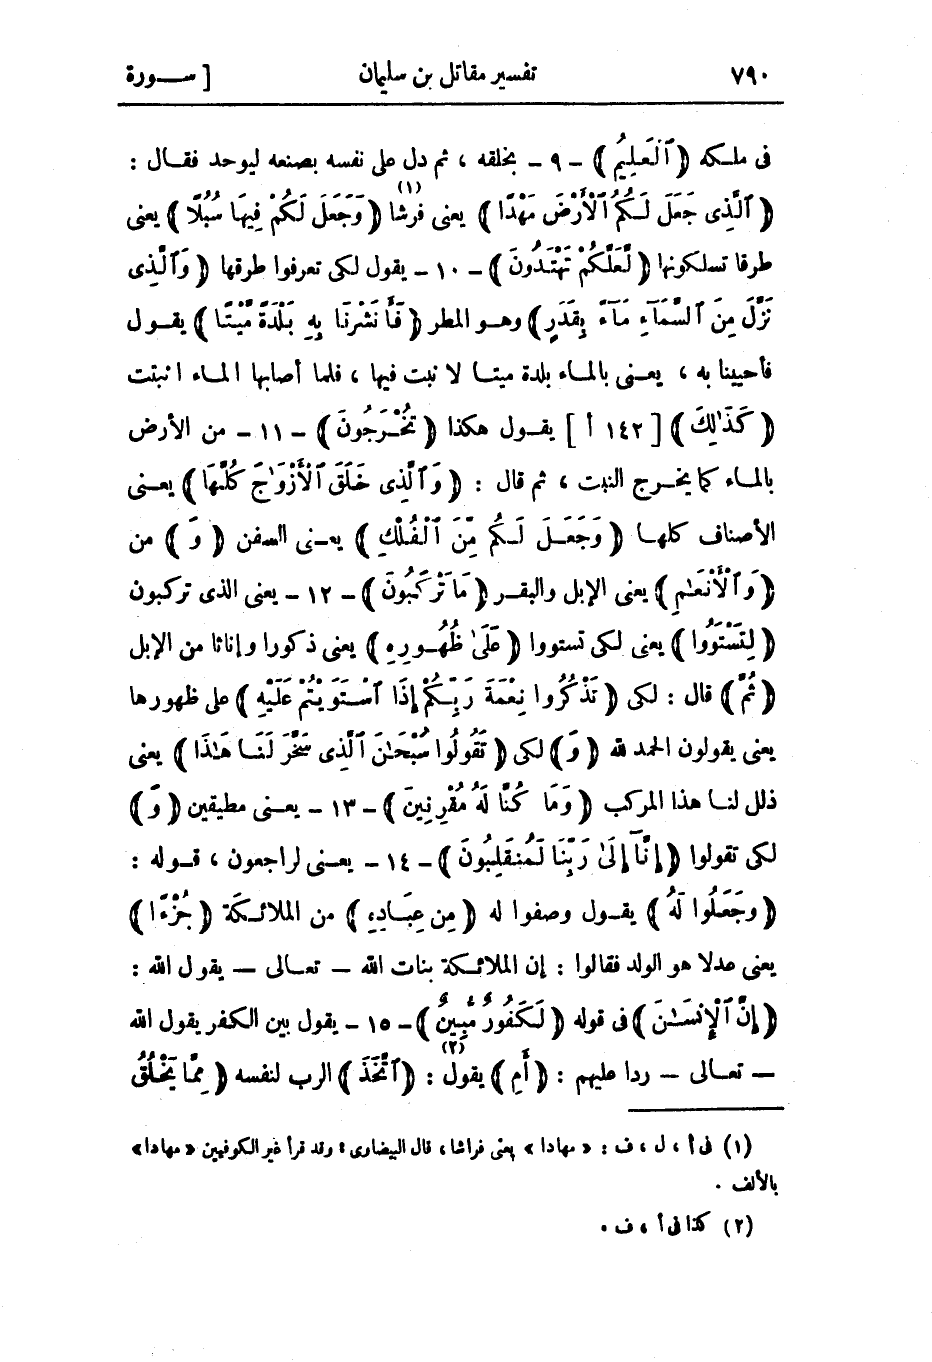 ٧٩٠ تفسير مقاتل بن سليمان [ سورة
فى ملكه ﴿ ٱلْعَلِيمُ ﴾ - ٩ - بخلقه ، ثم دل على نفسه بصنعه ليوحد فقال :
﴿ ٱلَّذِى جَعَلَ لَكُمُ ٱلْأَرْضَ مَهْدًا ﴾ يعنى فرشا (١) ﴿ وَجَعَلَ لَكُمْ فِيهَا سُبُلًا ﴾ يعنى
طرقا تسلكونها ﴿ لَّعَلَّكُمْ تَهْتَدُونَ ﴾ - ١٠ - يقول لكى تعرفوا طرقها ﴿ وَٱلَّذِى
نَزَّلَ مِنَ ٱلسَّمَآءِ مَآءً بِقَدَرٍ ﴾ وهو المطر ﴿ فَأَنشَرْنَا بِهِ بَلْدَةً مَّيْتًا ﴾ يقول
فأحيينا به ، يعنى بالماء بلدة ميتا لا نبت فيها ، فلما أصابها الماء انبتت
﴿ كَذَٰلِكَ ﴾ [ ١٤٢ أ ] يقول هكذا ﴿ تُخْرَجُونَ ﴾ - ١١ - من الأرض
بالماء كما يخرج النبت ، ثم قال : ﴿ وَٱلَّذِى خَلَقَ ٱلْأَزْوَٰجَ كُلَّهَا ﴾ يعنى
الأصناف كلها ﴿ وَجَعَلَ لَكُم مِّنَ ٱلْفُلْكِ ﴾ يعنى السفن ﴿ وَ ﴾ من
﴿ وَٱلْأَنْعَٰمِ ﴾ يعنى الإبل والبقر ﴿ مَا تَرْكَبُونَ ﴾ - ١٢ - يعنى الذى تركبون
﴿ لِتَسْتَوُۥا ﴾ يعنى لكى تستووا ﴿ عَلَىٰ ظُهُورِهِ ﴾ يعنى ذكورا وإناثا من الإبل
﴿ ثُمَّ ﴾ قال : لكى ﴿ تَذْكُرُوا نِعْمَةَ رَبِّكُمْ إِذَا ٱسْتَوَيْتُمْ عَلَيْهِ ﴾ على ظهورها
يعنى يقولون الحمد لله ﴿ وَ ﴾ لكى ﴿ تَقُولُوا سُبْحَٰنَ ٱلَّذِى سَخَّرَ لَنَا هَٰذَا ﴾ يعنى
ذلل لنا هذا المركب ﴿ وَمَا كُنَّا لَهُ مُقْرِنِينَ ﴾ - ١٣ - يعنى مطيقين ﴿ وَ ﴾
لكى تقولوا ﴿ إِنَّآ إِلَىٰ رَبِّنَا لَمُنقَلِبُونَ ﴾ - ١٤ - يعنى لراجعون ، قوله :
﴿ وَجَعَلُوا لَهُ ﴾ يقول وصفوا له ﴿ مِن عِبَادِهِ ﴾ من الملائكة ﴿ جُزْءًا ﴾
يعنى عدلا هو الولد فقالوا : إن الملائكة بنات الله — تعالى — يقول الله :
﴿ إِنَّ ٱلْإِنسَٰنَ ﴾ فى قوله ﴿ لَكَفُورٌ مُّبِينٌ ﴾ - ١٥ - يقول بين الكفر يقول الله
— تعالى — ردا عليهم : ﴿ أَمِ ﴾ يقول (٢) : ﴿ ٱتَّخَذَ ﴾ الرب لنفسه ﴿ مِمَّا يَخْلُقُ
(١) فى أ ، ل ، ف : « مهادا » يعنى فراشا ، قال البيضاوى : وقد قرأ غير الكوفيين « مهادا »
بالألف .
(٢) كذا فى أ ، ف .